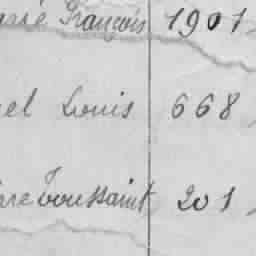 François 1901
el Louis 668
re Toussaint 201